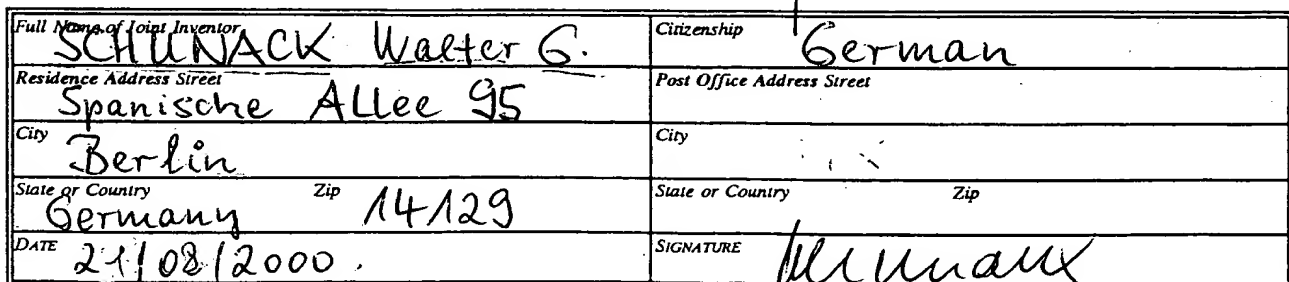 Full Name of Joint Inventor SCHUNACK Walter G.
Citizenship German
Residence Address Street Spanische Allee 95
Post Office Address Street
City Berlin
City
State or Country Germany Zip 14129
State or Country Zip
DATE 21/08/2000.
SIGNATURE